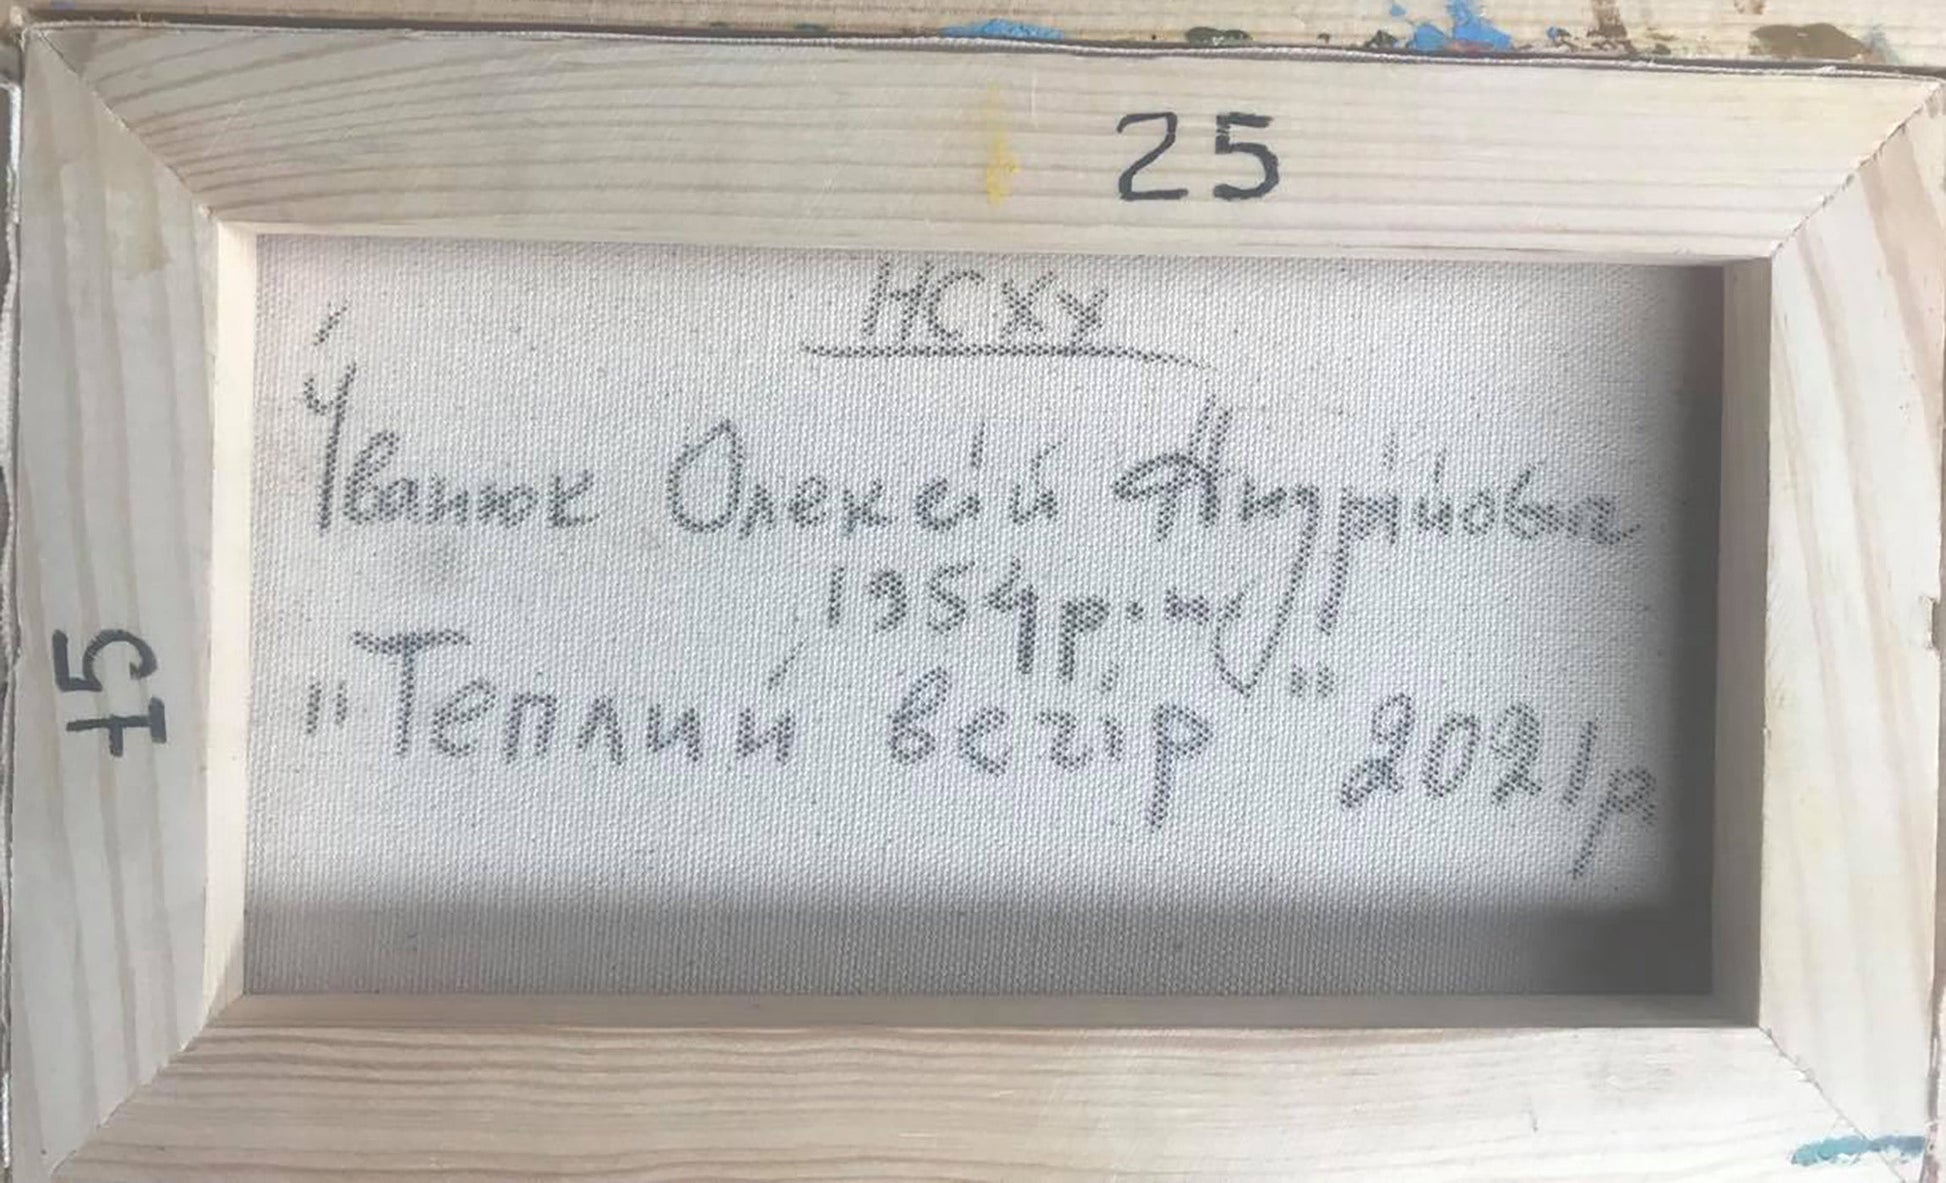 25
НСХУ
Іванюк Олексій Андрійович
1954р.н
"Теплий вечір" 2021р
15